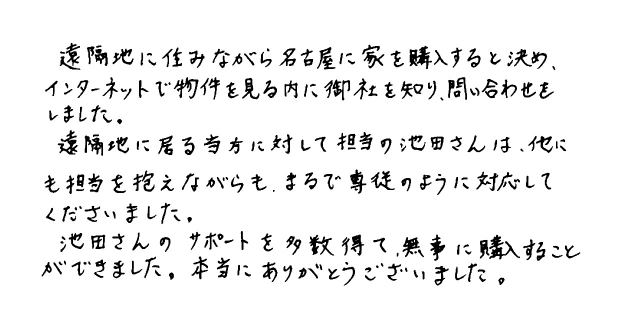 遠隔地に住みながら名古屋に家を購入すると決め、
インターネットで物件を見る内に御社を知り、問い合わせを
しました。
遠隔地に居る当方に対して担当の池田さんは、他に
も担当を抱えながらも、まるで専従のように対応して
くださいました。
池田さんのサポートを多数得て、無事に購入すること
ができました。本当にありがとうございました。